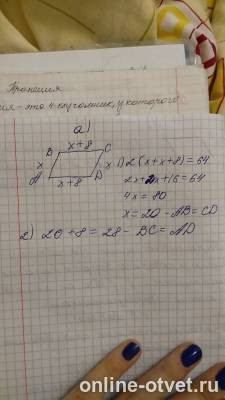 Трапеция
ия - это 4-хугольник, у которого
а)
x+8
B C
x x 1) 2(x+x+8)=64
A D 2x+2x+16=64
x+8
4x=80
x=20 - AB=CD
2) 20+8=28 - BC=AD
online-otvet.ru